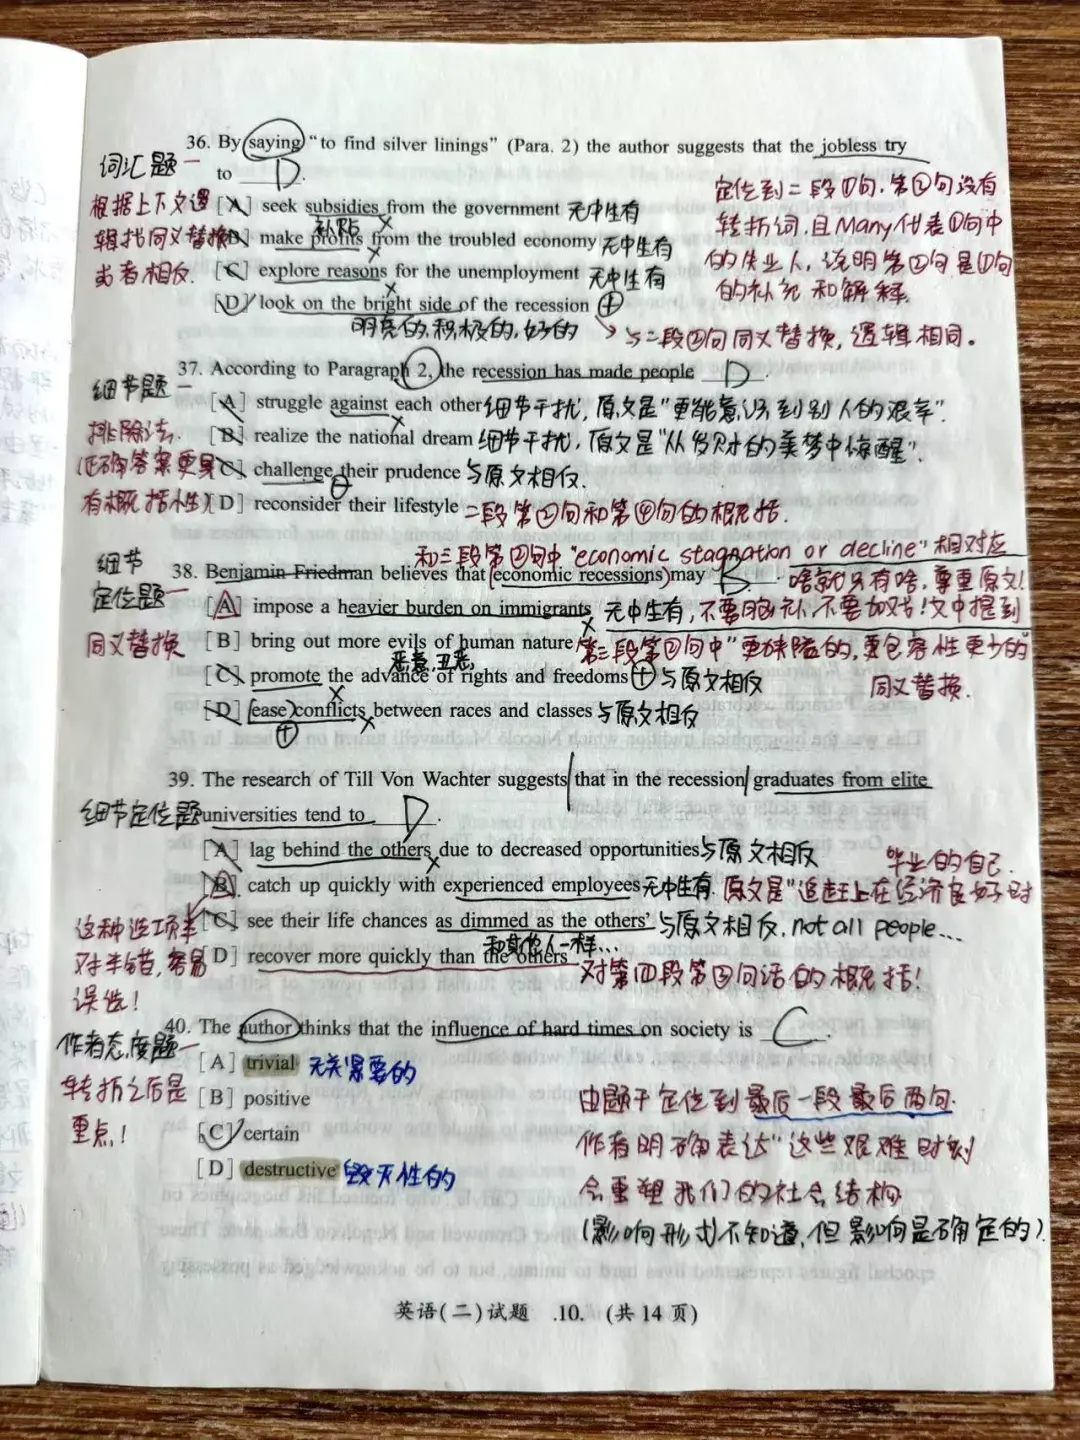 36. By saying “to find silver linings” (Para. 2) the author suggests that the jobless try
词汇题
to D.
定位到二段①句,第②句没有
根据上下文逻
[A] seek subsidies from the government 无中生有
补贴
转折词,且Many代表①句中
辑找同义替换
[B] make profits from the troubled economy 无中生有
的失业人,说明第②句是①句
或者相反.
[C] explore reasons for the unemployment 无中生有
的补充和解释.
[D] look on the bright side of the recession +
明亮的,积极的,好的
与二段②句同义替换,逻辑相同。
37. According to Paragraph 2, the recession has made people D.
细节题
[A] struggle against each other 细节干扰,原文是“更能意识到别人的艰辛”.
排除法.
[B] realize the national dream 细节干扰,原文是“从发财的美梦中惊醒”.
(正确答案更具
[C] challenge their prudence 与原文相反.
有概括性)
[D] reconsider their lifestyle 二段第②句和第④句的概括.
和三段第②句中“economic stagnation or decline”相对应
细节
38. Benjamin Friedman believes that economic recessions may B.
啥就只有啥,尊重原文!
定位题
[A] impose a heavier burden on immigrants 无中生有,不要脑补,不要加戏!文中提到
同义替换
[B] bring out more evils of human nature 第三段第②句中“更狭隘的,更包容性更少的”
恶意,丑恶
同义替换.
[C] promote the advance of rights and freedoms + 与原文相反
[D] ease conflicts between races and classes 与原文相反
+
39. The research of Till Von Wachter suggests that in the recession graduates from elite
细节定位题
universities tend to D.
[A] lag behind the others due to decreased opportunities 与原文相反
毕业的自己.
[B] catch up quickly with experienced employees 无中生有.原文是“追赶上在经济良好时
这种选项半
[C] see their life chances as dimmed as the others’ 与原文相反,not all people...
和其他人一样...
对半错,容易
[D] recover more quickly than the others
对第四段第③句话的概括!
误选!
40. The author thinks that the influence of hard times on society is C.
作者态度题
[A] trivial 无关紧要的
转折之后是
[B] positive
由题干定位到最后一段最后两句.
重点!
[C] certain
作者明确表达“这些艰难时刻
[D] destructive 毁灭性的
会重塑我们的社会结构
(影响形式不知道,但影响是确定的).
英语(二)试题 .10. (共 14 页)